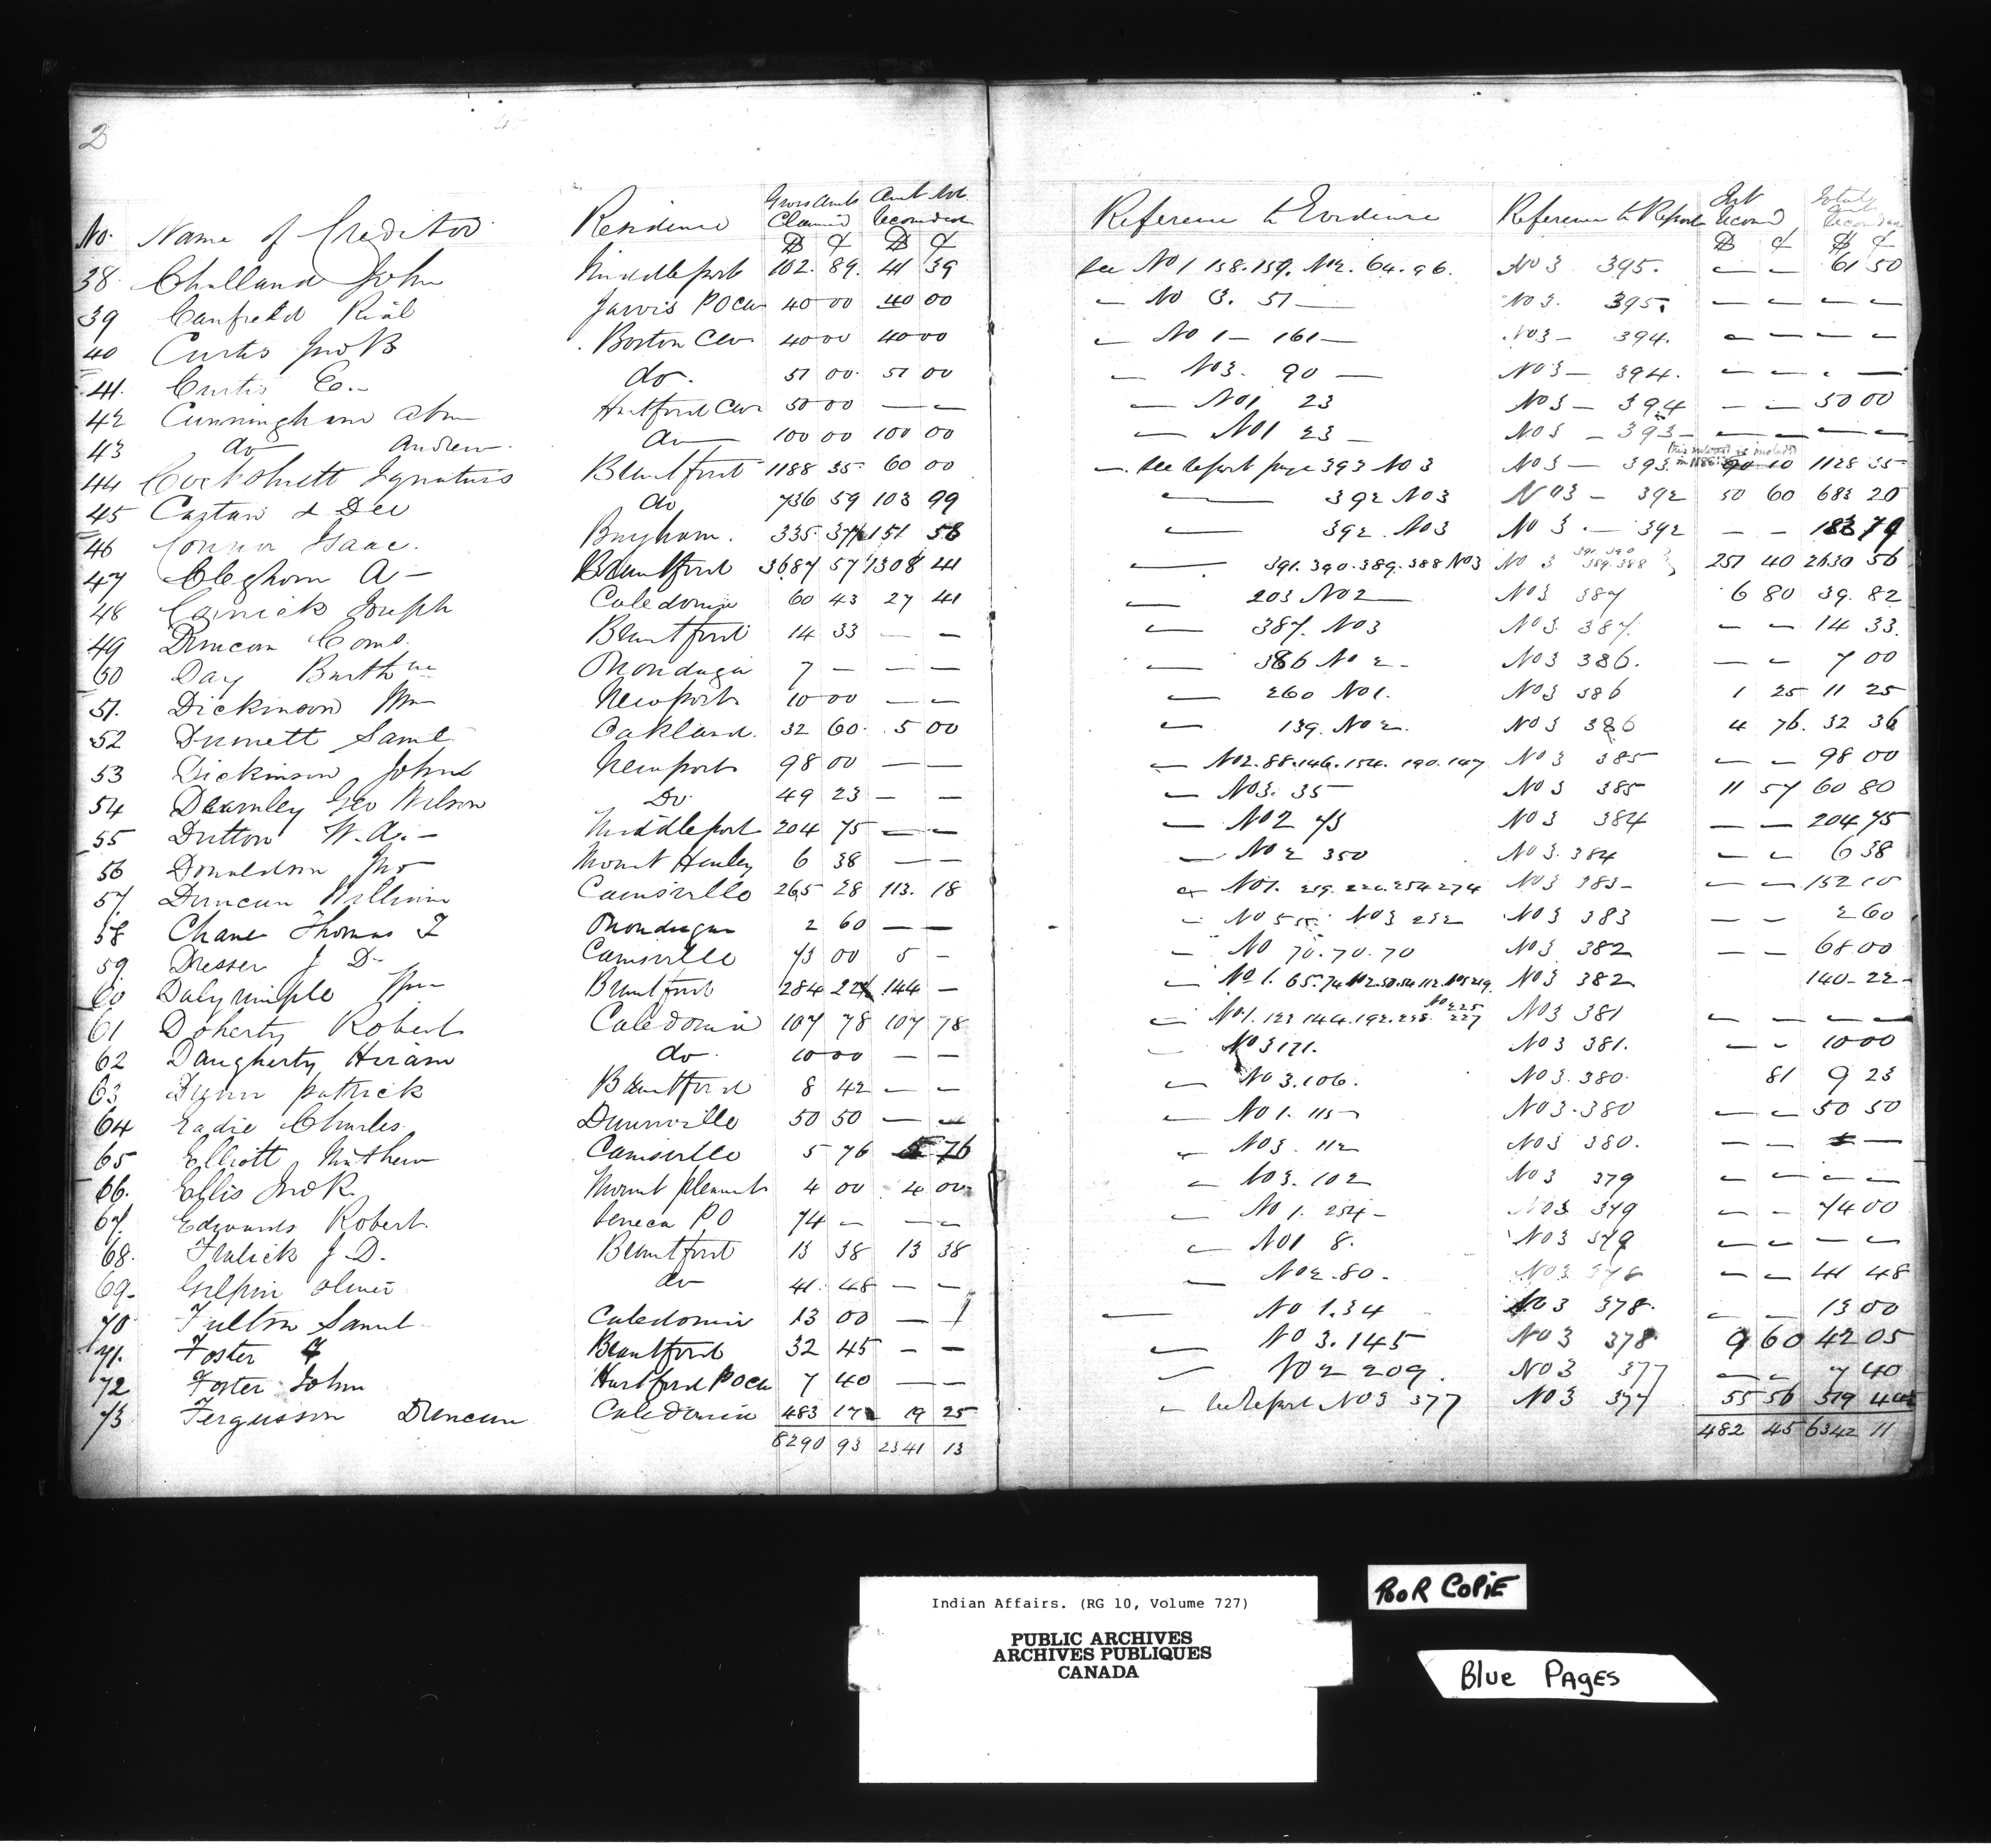 2
No. Name of Creditor Residence Gross Amts Claimed Amt Not Recommended Reference to Evidence Reference to Report Int Recomd Total Amt Recommended
$ ¢ $ ¢ $ ¢ $ ¢
38 Challand John Middleport 102. 89. 41 39 See No 1 158.159. No 2. 64.96. No 3 395. — — 61 50
39 Canfield Rial Jarvis PO CW 40 00 40 00 — No 3. 51 — No 3. 395. — — — —
40 Curtis Jno B Boston CW 40 00 40 00 — No 1 — 161 — No 3 — 394. — — — —
41. Curtis E. — do. 51 00. 51 00 — No 3. 90 — No 3 — 394. — — — —
42 Cunningham Abm Hartford CW 50 00 — — — No 1 23 No 3 — 394 — — 50 00
43 do Andrew do 100 00 100 00 — No 1 23 — No 3 — 393 — — — — —
44 Cockshutt Ignatius Brantford 1188 35 60 00 — See report page 393 No 3 No 3 — 393 this interest is included in 1188.35 90 10 1128 35
45 Costan & Dee do 736 59 103 99 — 392 No 3 No 3 — 392 50 60 683 20
46 Connor Isaac. Burgham. 335. 37 151 58 — 392. No 3 No 3 — 392 — — 183 79
47 Cleghorn A — Brantford 3687 57 1308 41 — 391.390.389.388 No 3 No 3 391.390 389.388 251 40 2630 56
48 Carrick Joseph Caledonia 60 43 27 41 — 203 No 2 — No 3 387 6 80 39. 82
49 Duncan Coms. Brantford 14 33 — — — 387. No 3 No 3. 387. — — 14 33.
50 Day Barthw Onondaga 7 — — — — 386 No 2 — No 3 386. — — 7 00
51. Dickinson Wm Newport 10 00 — — — 260 No 1. No 3 386 1 25 11 25
52 Dunnett Saml Oakland. 32 60. 5 00 — 139. No 2. No 3 386 4 76. 32 36
53 Dickinson John Newport 98 00 — — — No 2. 88.146.154. 190.147 No 3 385 — — 98 00
54 Dearnley Geo Wilson Do 49 23 — — — No 3. 35 — No 3 385 11 57 60 80
55 Dutton W. A. — Middleport 204 75 — — — No 2 73 No 3 384 — — 204 75
56 Donaldson Jno Mount Henley 6 38 — — — No 2 350 No 3. 384 — — 6 38
57. Duncan William Cainsville 265 28 113. 18 — No 1. 219. 226. 254 274 No 3 383 — — — 152 10
58 Chane Thomas Onondaga 2 60 — — — No 3 232 No 3 383 — — 2 60
59. Dresser J D — Cainsville 73 00 5 — — No 70.70.70 No 3 382 — — 68 00
60 Dalyrimple Wm Brantford 284 22 144 — — No 1. 65.74 No 3 382 140 — 22 —
61 Doherty Robert Caledonia 107 78 107 78 — No 1. 123 144.192.238. No 2 225 227 No 3 381 — — — —
62 Daugherty Hiram do. 10 00 — — — No 3 171. No 3 381. — — 10 00
63 Flynn Patrick Brantford 8 42 — — — No 3.106. No 3. 380. 81 9 23
64 Eadie Charles Dunnville 50 50 — — — No 1. 115 No 3. 380 — — 50 50
65 Elliott Mathew Cainsville 5 76 5 76 — No 3. 112 No 3 380. — — — —
66. Ellis Jno R. Mount Pleasant 4 00 4 00 — No 3. 102 No 3 379 — — — —
67. Edwards Robert. Seneca PO 74 — — — — No 1. 254 — No 3 379 — — 74 00
68. Flalick J. D. Brantford 13 38 13 38 — No 1 8. No 3 379 — — — —
69. Gilpin Oliver do 41. 48 — — — No 2.80. No 3 378 — — 41 48
70 Fulton Samul Caledonia 13 00 — — — No 1.34 No 3 378. — — 13 00
71. Foster Brantford 32 45 — — — No 3.145 No 3 378 9 60 42 05
72 Foster John Hartford PO CW 7 40 — — — No 2 209. No 3 377 — — 7 40
73 Fergusson Duncan Caledonia 483 17 19 25 — See Report No 3 377 No 3 377 55 56 519 48
8290 93 2341 13 482 45 6342 11
Indian Affairs. (RG 10, Volume 727)
PUBLIC ARCHIVES
ARCHIVES PUBLIQUES
CANADA
POOR COPIE
Blue PAgES